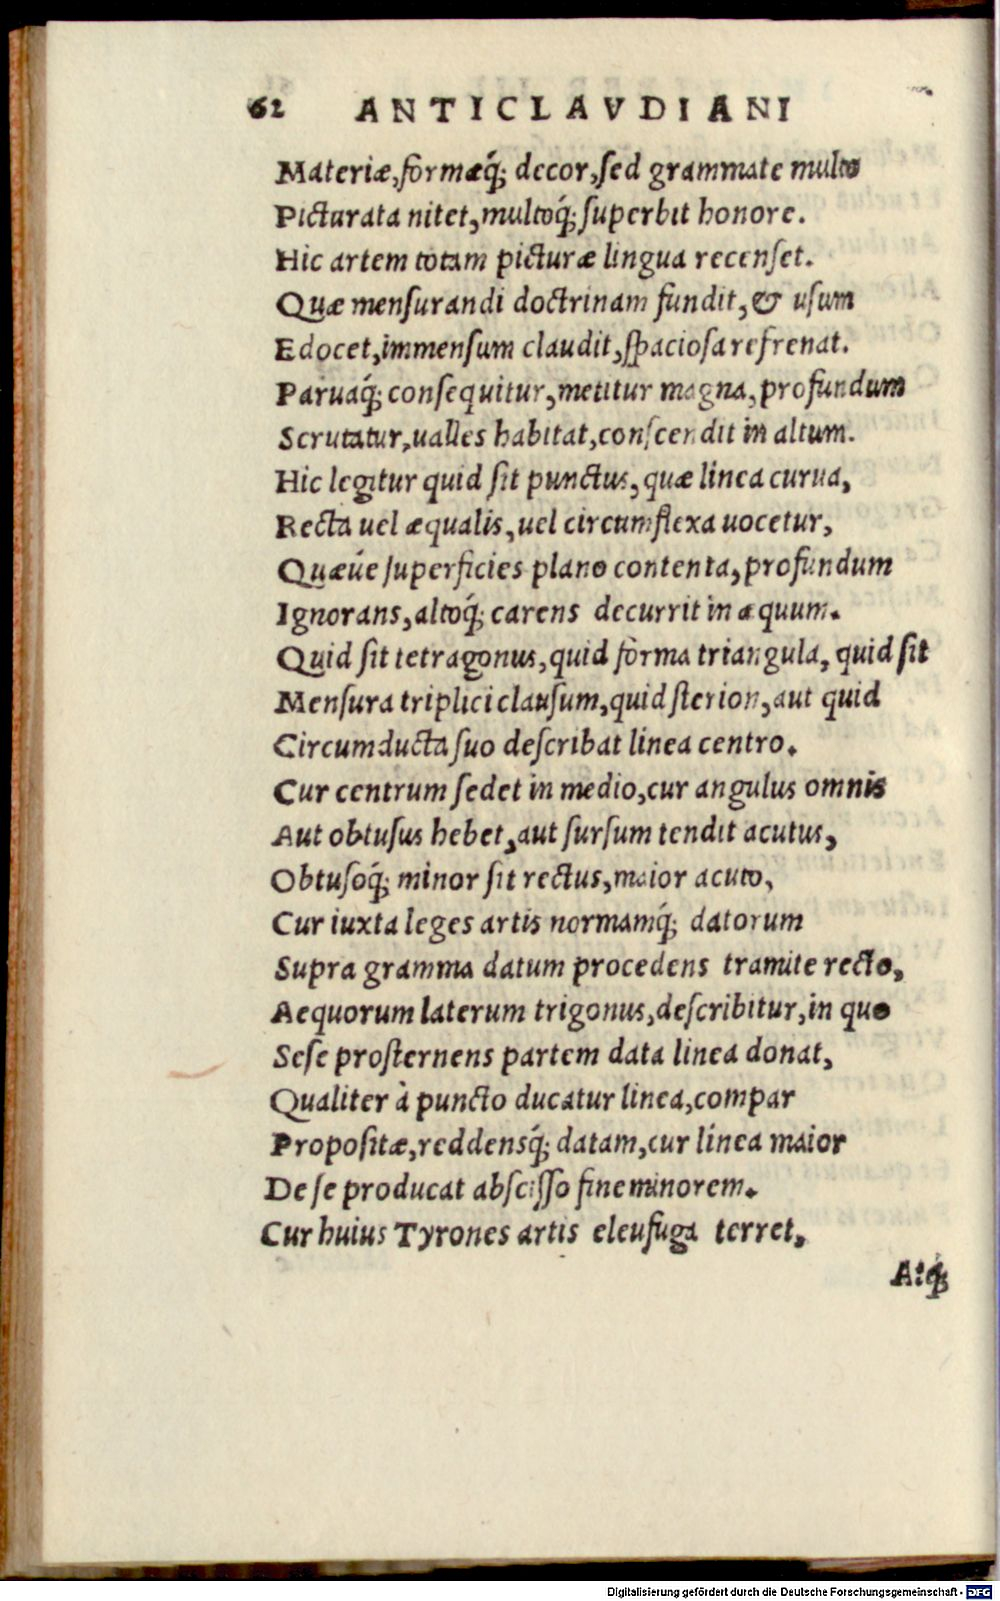 62 ANTICLAVDIANI
Materiæ,formæq́; decor,ſed grammate multo
Picturata nitet,multoq́; ſuperbit honore.
Hic artem totam picturæ lingua recenſet.
Quæ menſurandi doctrinam fundit,& uſum
Edocet,immenſum claudit,ſpacioſa refrenat.
Paruaq́; conſequitur,metitur magna,profundum
Scrutatur,ualles habitat,conſcendit in altum.
Hic legitur quid ſit punctus,quæ linea curua,
Recta uel æqualis,uel circumflexa uocetur,
Quæúe ſuperficies plano contenta,profundum
Ignorans,altoq́; carens decurrit in æquum.
Quid ſit tetragonus,quid forma triangula, quid ſit
Menſura triplici clauſum,quid ſterion,aut quid
Circumducta ſuo deſcribat linea centro.
Cur centrum ſedet in medio,cur angulus omnis
Aut obtuſus hebet,aut ſurſum tendit acutus,
Obtuſoq́; minor ſit rectus,maior acuto,
Cur iuxta leges artis normamq́; datorum
Supra gramma datum procedens tramite recto,
Aequorum laterum trigonus,deſcribitur,in quo
Seſe proſternens partem data linea donat,
Qualiter à puncto ducatur linea,compar
Propoſitæ,reddensq́; datam,cur linea maior
De ſe producat abſciſſo fine minorem.
Cur huius Tyrones artis eleufuga terret,
Atq́;
Digitalisierung gefördert durch die Deutsche Forschungsgemeinschaft - DFG